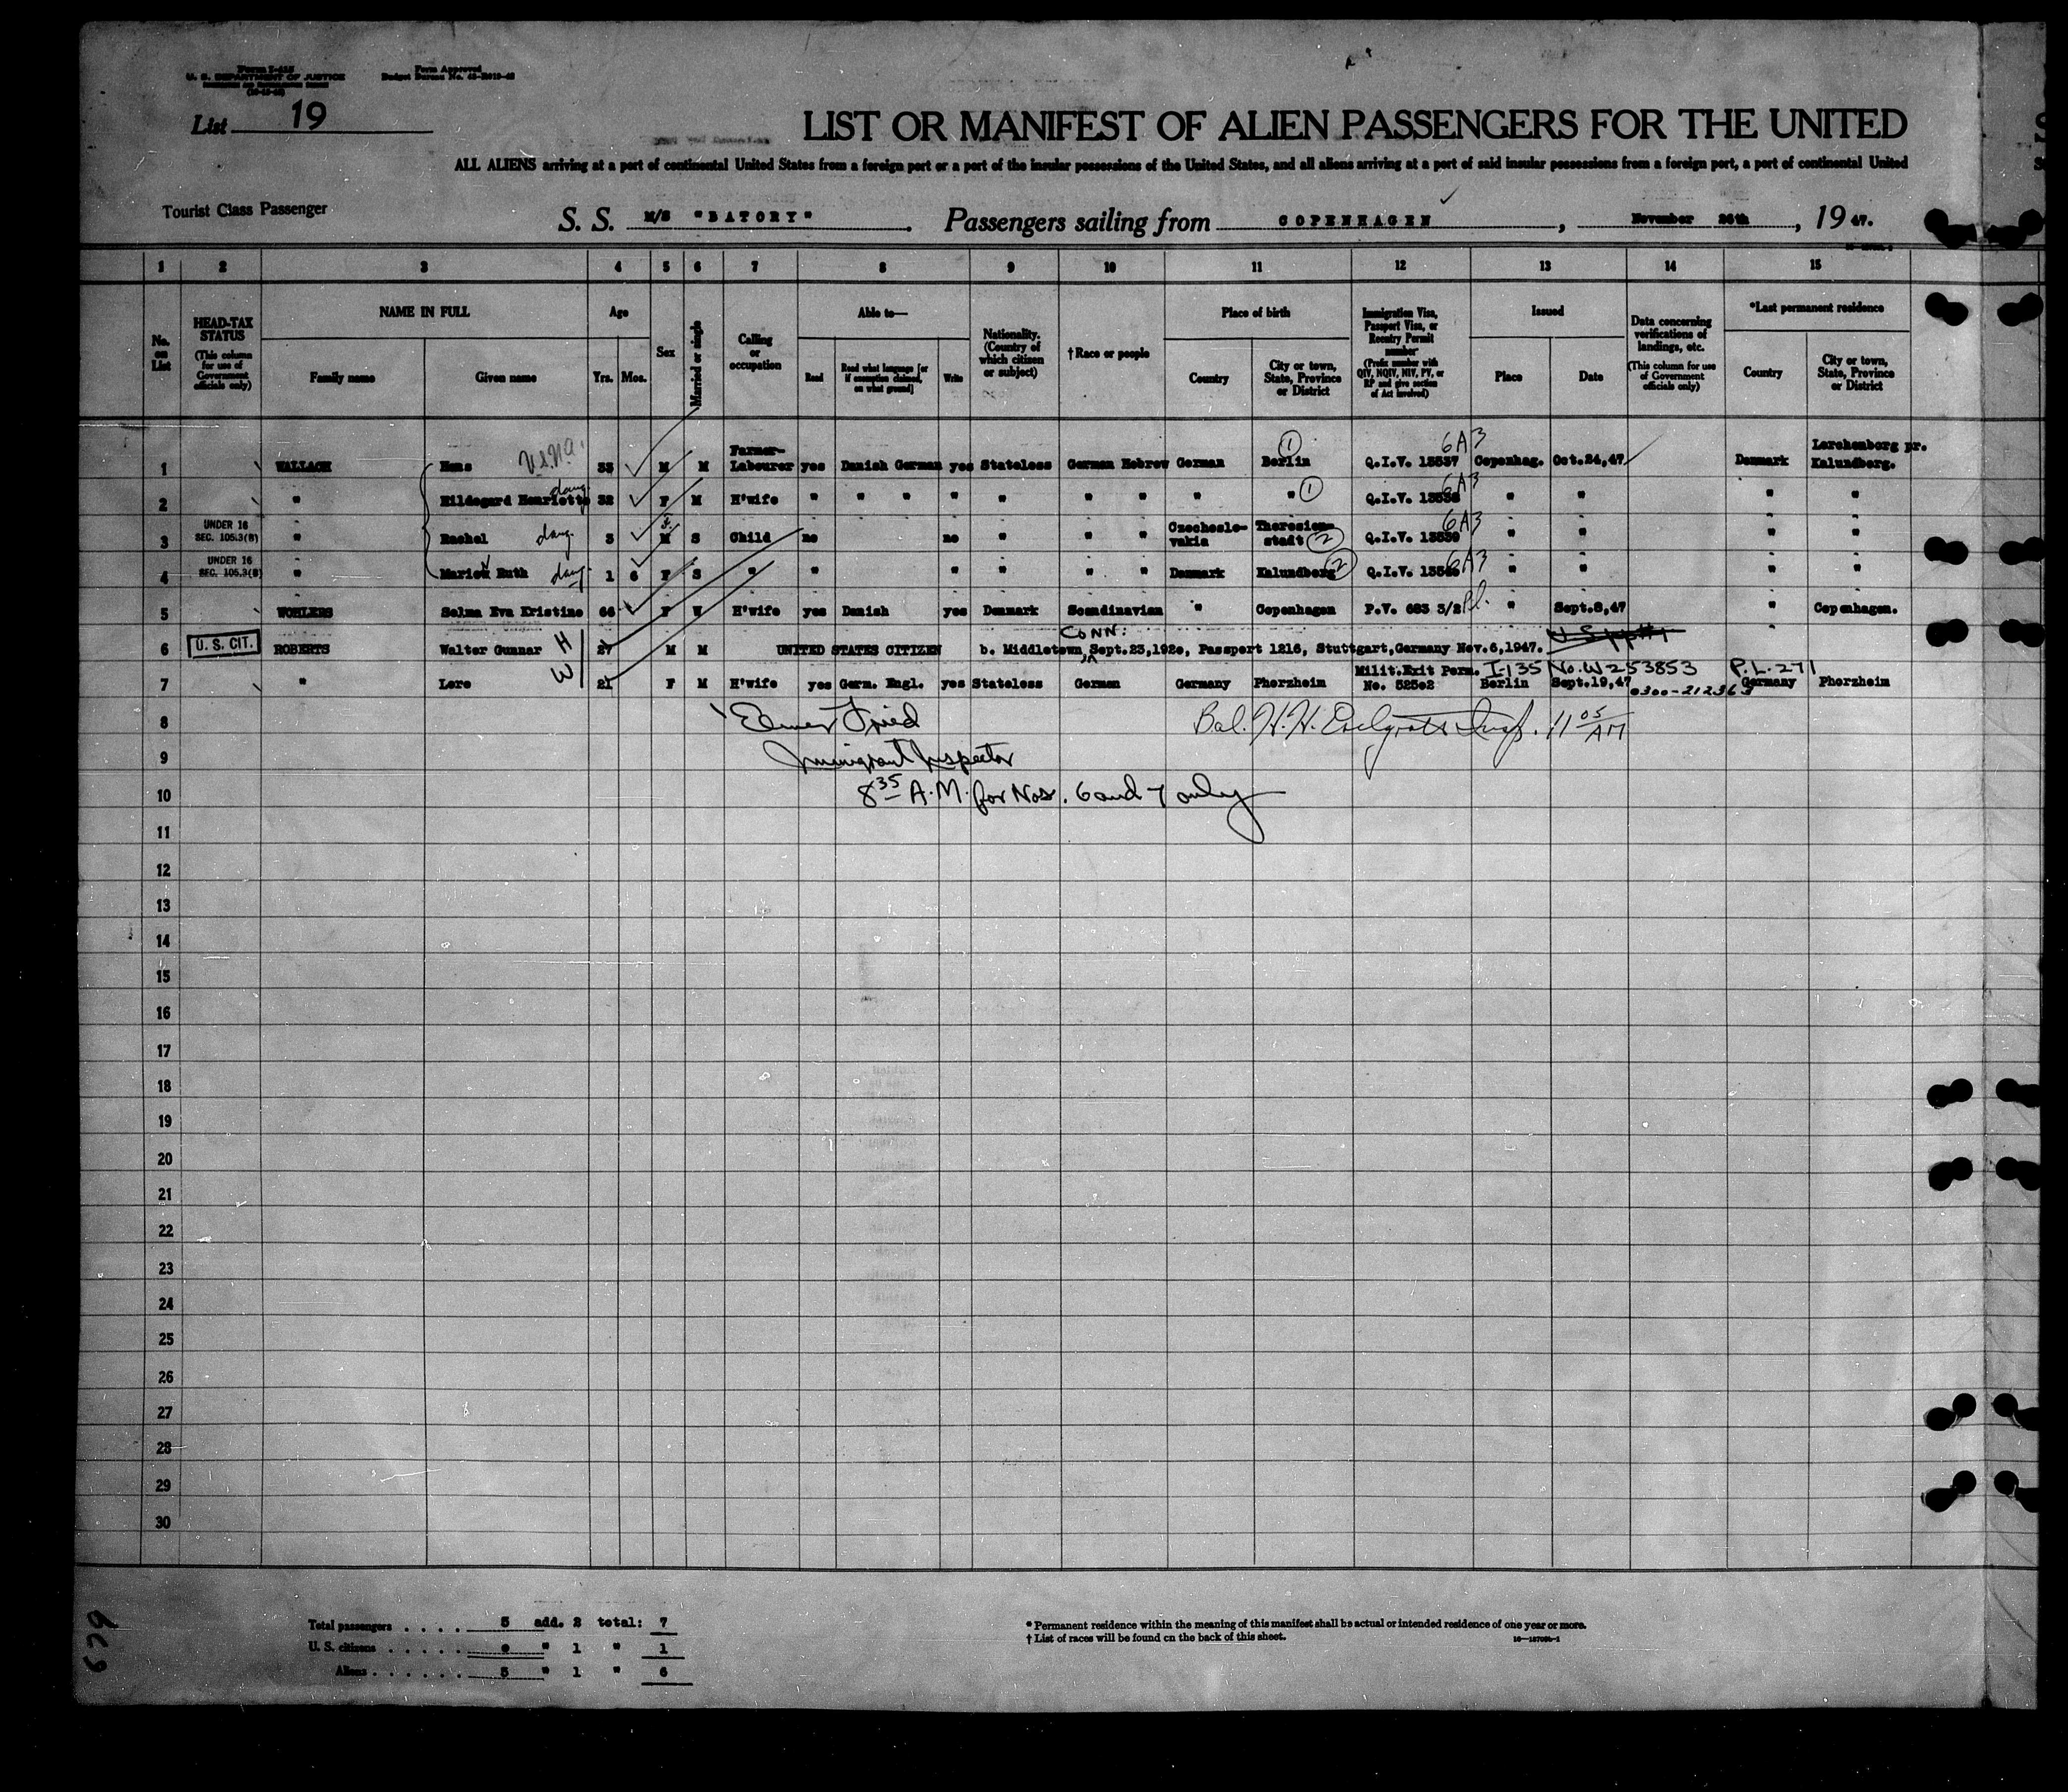 Form I-415
U. S. DEPARTMENT OF JUSTICE
Form Approved
Budget Bureau No. 43-R019-42
List 19
LIST OR MANIFEST OF ALIEN PASSENGERS FOR THE UNITED
ALL ALIENS arriving at a port of continental United States from a foreign port or a port of the insular possessions of the United States, and all aliens arriving at a port of said insular possessions from a foreign port, a port of continental United
Tourist Class Passenger
S. S. M/S "BATORY". Passengers sailing from COPENHAGEN, November 26th, 19 47.
1 2 3 4 5 6 7 8 9 10 11 12 13 14 15
No. on List
HEAD-TAX STATUS (This column for use of Government officials only)
NAME IN FULL Family name Given name
Age Yrs. Mos.
Sex
Married or single
Calling or occupation
Able to— Read Read what language [or if exemption claimed, on what ground] Write
Nationality. (Country of which citizen or subject)
†Race or people
Place of birth Country City or town, State, Province or District
Immigration Visa, Passport Visa, or Reentry Permit number (Prefix number with QIV, NQIV, NIV, PV, or RP and give section of Act involved)
Issued Place Date
Data concerning verifications of landings, etc. (This column for use of Government officials only)
*Last permanent residence Country City or town, State, Province or District
1 WALLACH Hans 33 M M Farmer-Labourer yes Danish German yes Stateless German Hebrew German Berlin 1 Q.I.V. 13537 6A3 Copenhag. Oct.24,47 Denmark Lerchenborg pr. Kalundborg.
2 " Hildegard Henriette 32 F M H'wife " " " " " " " " " 1 Q.I.V. 13538 6A3 " " " "
3 UNDER 16 SEC. 105.3(B) " Rachel dang. 3 M S Child no no " " " Czechoslo-vakia Theresien-stadt 2 Q.I.V. 13539 6A3 " " " "
4 UNDER 16 SEC. 105.3(B) " Ruth 1 6 F S " " " " " " Denmark Kalundborg 2 Q.I.V. 6A3 " " " "
5 WOHLERS Selma Eva Kristine 66 F W H'wife yes Danish yes Denmark Scandinavian " Copenhagen P.V. 683 3/2 " Sept.8,47 " Copenhagen.
6 U. S. CIT. ROBERTS Walter Gunnar H 27 M M UNITED STATES CITIZEN b. Middletown, CONN: Sept.23,192o, Passport 1216, Stuttgart,Germany Nov.6,1947. "
7 " Lore W 21 F M H'wife yes Germ. Engl. yes Stateless German Germany Phorzheim Milit.Exit Perm. No. 525o2 I-135 No. W 253853 Berlin Sept.19,47 0300-212363 P.L. 271 Germany Phorzheim
8 Elmer Fried Bal. H.H. Insp. 11 05 AM
9 Immigrant Inspector
10 8 35 A.M. for Nos. 6 and 7 only
11
12
13
14
15
16
17
18
19
20
21
22
23
24
25
26
27
28
29
30
Total passengers . . . . . 5 add. 2 total: 7
U. S. citizens . . . . . o " 1 " 1
Aliens . . . . . . 5 " 1 " 6
* Permanent residence within the meaning of this manifest shall be actual or intended residence of one year or more.
† List of races will be found on the back of this sheet.